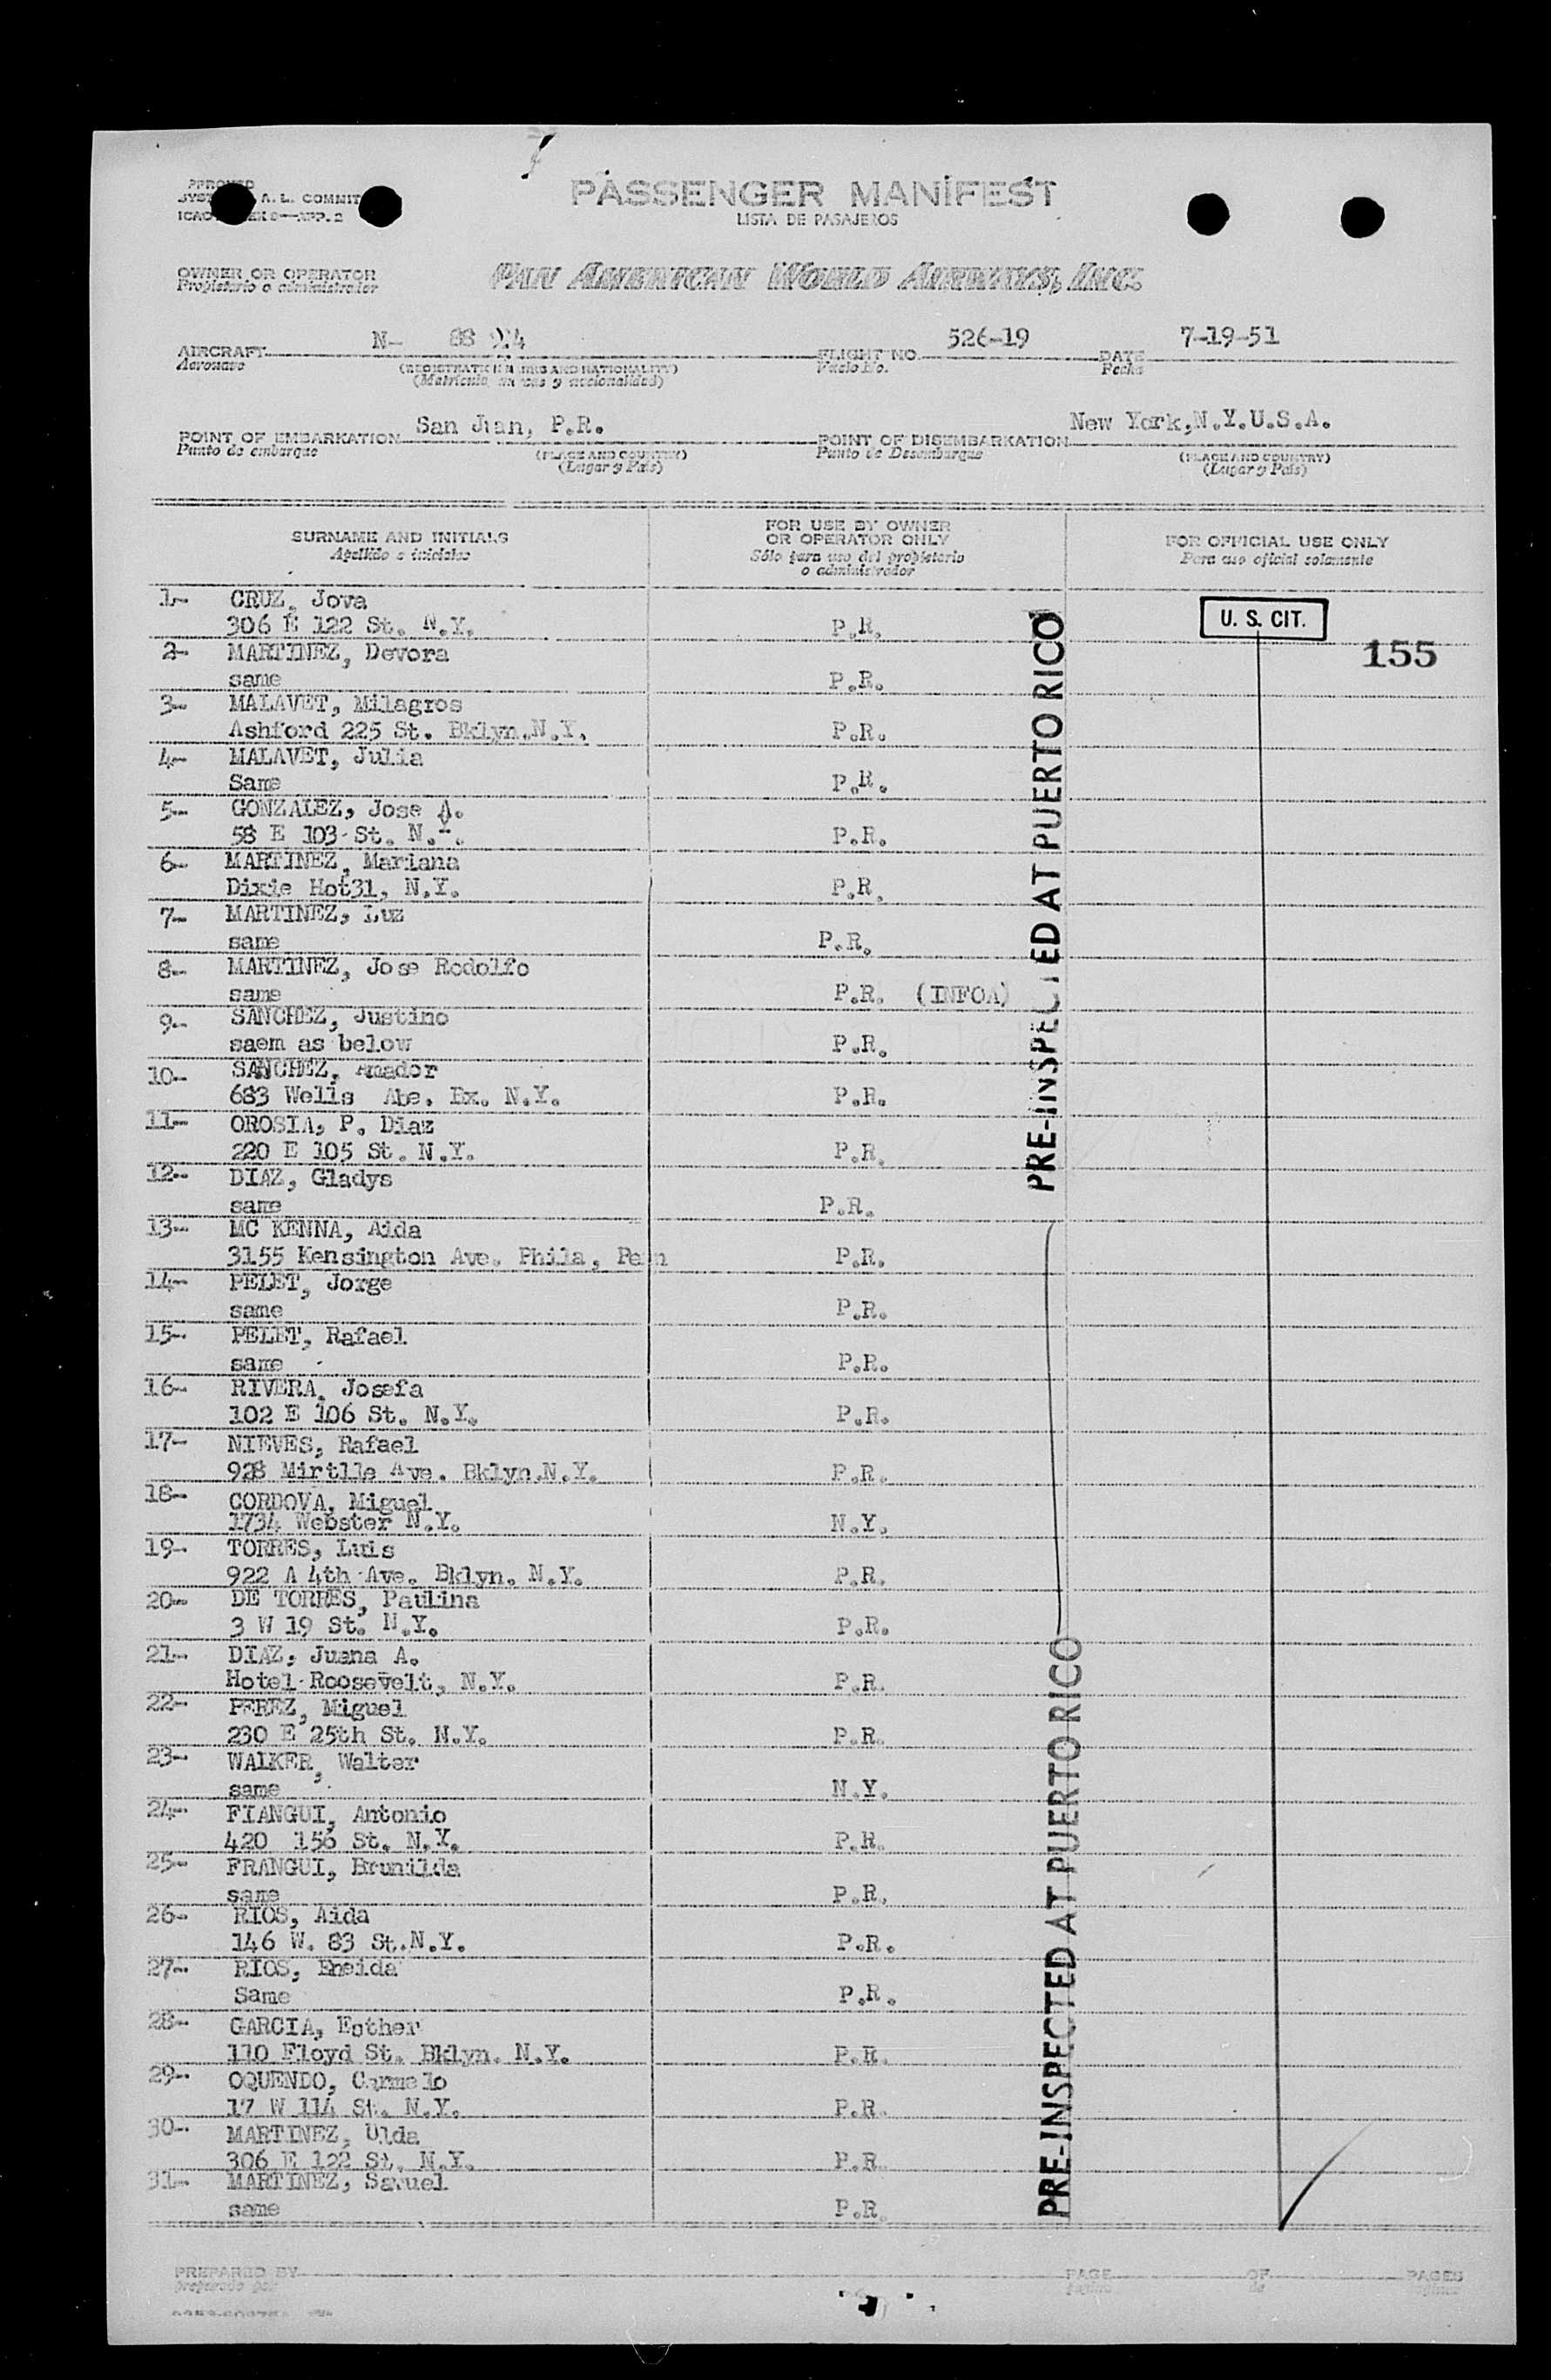 PASSENGER MANIFEST
LISTA DE PASAJEROS
A. L. COMMIT
OWNER OR OPERATOR
Propietario o administrador
PAN AMERICAN WORLD AIRWAYS, INC.
AIRCRAFT N- FLIGHT NO. 526-19 DATE 7-19-51
Aeronave Vuelo No. Fecha
(REGISTRATION MARKS AND NATIONALITY)
(Matricula, marcas y nacionalidad)
POINT OF EMBARKATION San Juan, P.R. POINT OF DISEMBARKATION New York,N.Y.U.S.A.
Punto de embarque (PLACE AND COUNTRY) Punto de Desembarque (PLACE AND COUNTRY)
(Lugar y País) (Lugar y País)
SURNAME AND INITIALS FOR USE BY OWNER OR OPERATOR ONLY FOR OFFICIAL USE ONLY
Apellido e iniciales Sólo para uso del propietario o administrador Para uso oficial solamente
1- CRUZ, Jova
306 E 122 St. N.Y. P.R. U. S. CIT.
155
2- MARTINEZ, Devora
same P.R.
3- MALAVET, Milagros
Ashford 225 St. Bklyn.N.Y. P.R.
4- MALAVET, Julia
Same P.R.
5- GONZALEZ, Jose A.
58 E 103 St. N.Y. P.R.
6- MARTINEZ, Mariana
Dixie Hot31, N.Y. P.R.
7- MARTINEZ, Luz
same P.R.
8- MARTINEZ, Jose Rodolfo
same P.R. (INFOA)
9- SANCHEZ, Justino
saem as below P.R.
10- SANCHEZ, Amador
683 Wells Abe. Bx. N.Y. P.R.
11- OROSIA, P. Diaz
220 E 105 St. N.Y. P.R.
12- DIAZ, Gladys
same P.R.
13- MC KENNA, Aida
3155 Kensington Ave. Phila, Penn P.R.
14- PELET, Jorge
same P.R.
15- PELET, Rafael
same P.R.
16- RIVERA, Josefa
102 E 106 St. N.Y. P.R.
17- NIEVES, Rafael
928 Mirtlle Ave. Bklyn.N.Y. P.R.
18- CORDOVA, Miguel
1734 Webster N.Y. N.Y.
19- TORRES, Luis
922 A 4th Ave. Bklyn. N.Y. P.R.
20- DE TORRES, Paulina
3 W 19 St. N.Y. P.R.
21- DIAZ, Juana A.
Hotel Roosevelt, N.Y. P.R.
22- PEREZ, Miguel
230 E 25th St. N.Y. P.R.
23- WALKER, Walter
same N.Y.
24- FIANGUI, Antonio
420 156 St. N.Y. P.R.
25- FRANGUI, Brunilda
same P.R.
26- RIOS, Aida
146 W. 83 St.N.Y. P.R.
27- RIOS, Eneida
Same P.R.
28- GARCIA, Esther
110 Floyd St. Bklyn. N.Y. P.R.
29- OQUENDO, Carmelo
17 W 114 St. N.Y. P.R.
30- MARTINEZ, Ulda
306 E 122 St. N.Y. P.R.
31- MARTINEZ, Samuel
same P.R.
PRE-INSPECTED AT PUERTO RICO
PRE-INSPECTED AT PUERTO RICO
PREPARED BY PAGE OF PAGES
preparado por página de páginas